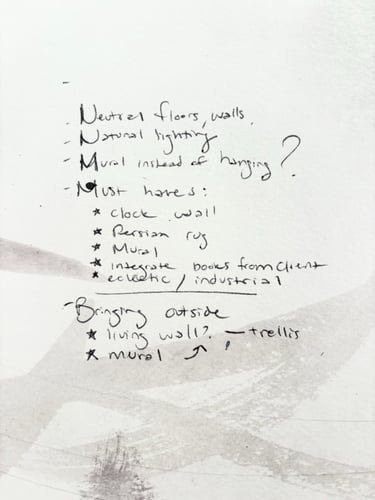 -
- Neutral floors, walls.
- Natural lighting
- Mural instead of hanging ?
- Must haves:
* clock wall
* Persian rug
* Mural
* integrate books from client
* eclectic / industrial
- Bringing outside
* living wall? — trellis
* mural ↗ !